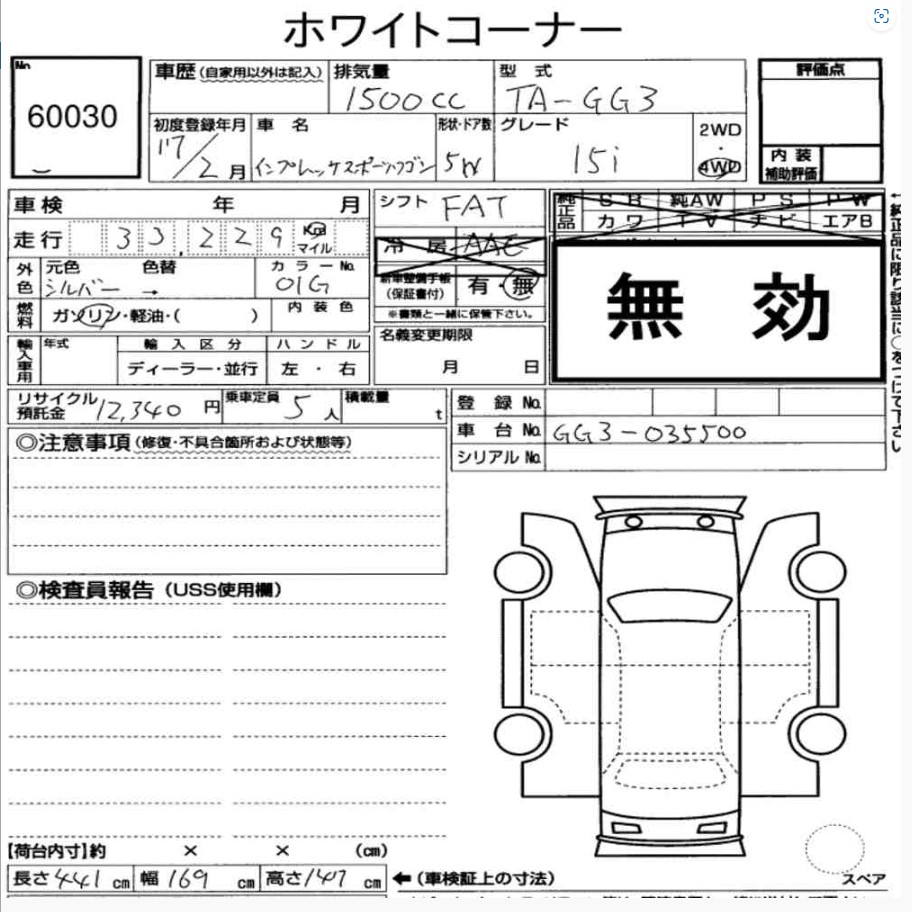 ホワイトコーナー
No.
60030
車歴(自家用以外は記入)
排気量
1500cc
型式
TA-GG3
評価点
初度登録年月
17/2月
車名
インプレッサスポーツワゴン
形状・ドア数
5W
グレード
15i
2WD
・
4WD
内装
補助評価
車検 年 月
走行 33,229 Km
マイル
シフト FAT
冷房 AAC
純正品
SR 純AW PS PW
カワ TV ナビ エアB
無効
外色
元色 色替
シルバー →
カラーNo.
01G
新車整備手帳
(保証書付)
有・無
※書類と一緒に保管下さい。
燃料
ガソリン・軽油・( )
内装色
輸入車用
年式
輸入区分
ディーラー・並行
ハンドル
左・右
名義変更期限
月 日
リサイクル
預託金 12,340円
乗車定員 5人
積載量 t
登録No.
車台No. GG3-035500
シリアルNo.
◎注意事項(修復・不具合箇所および状態等)
◎検査員報告(USS使用欄)
【荷台内寸】約 × × (cm)
長さ441cm 幅169cm 高さ147cm
←(車検証上の寸法)
スペア